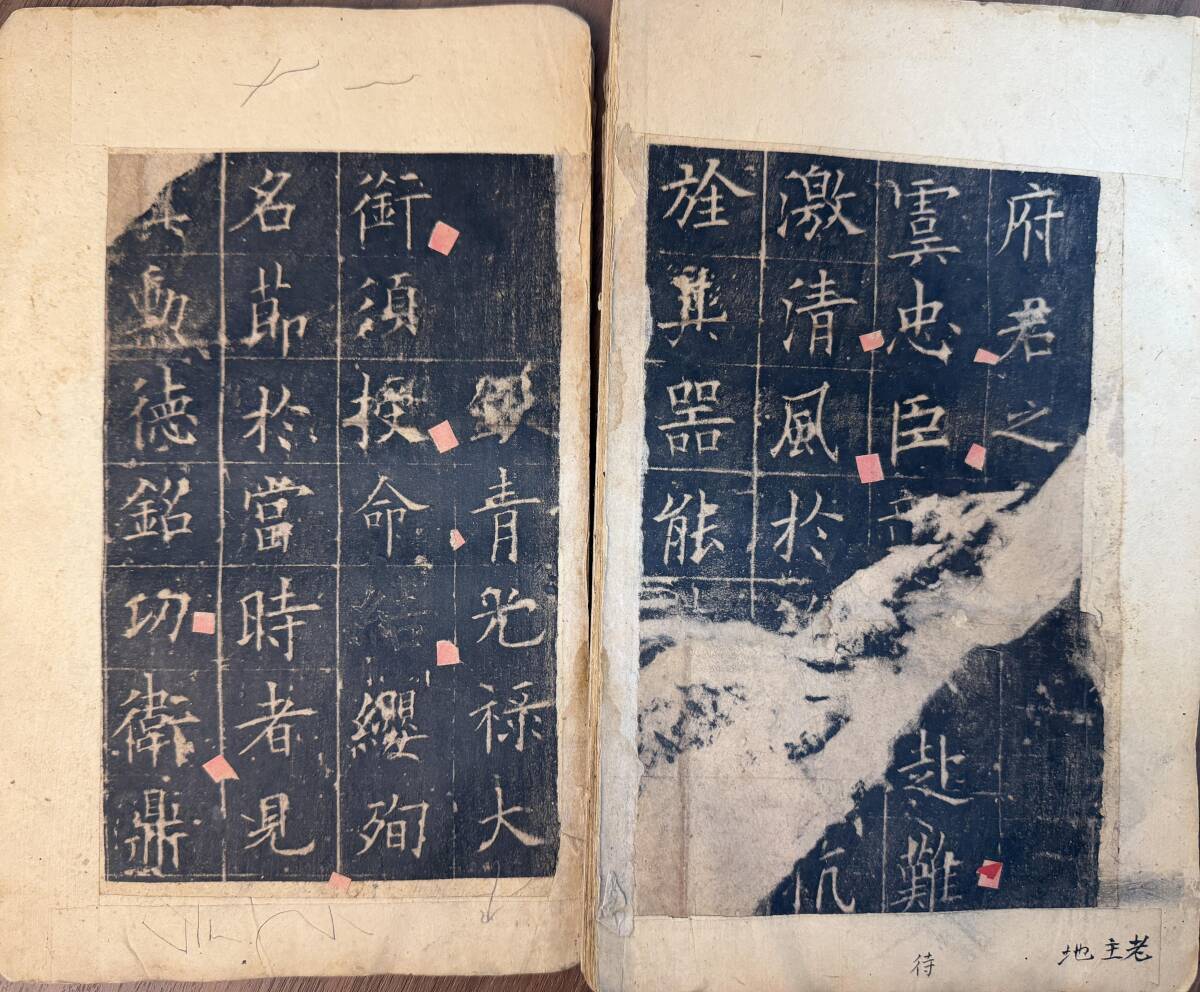 府君之
虞忠臣彰赴難
激清風於抗
旌其器能
銀青光祿大
銜須授命結纓殉
名節於當時者見
勳德銘功衛鼎
待
老主地